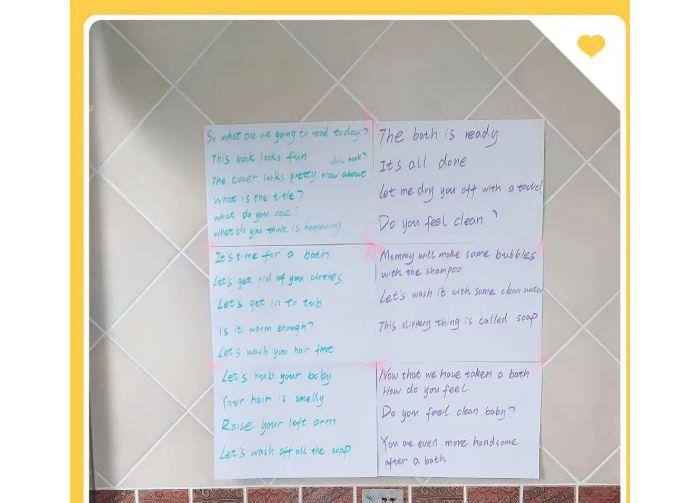 So what are we going to read today?
This book looks fun
The cover looks pretty. How about this book?
What is the title?
what do you see?
what do you think is happening
It's time for a bath
Let's get rid of you clothes
Let's get in to tub
Is it warm enough?
Let's wash you hair first
Let's rub your baby
Your hair is smelly
Raise your left arm
Let's wash off all the soap
The bath is ready
It's all done
Let me dry you off with a towel
Do you feel clean?
Mommy will make some bubbles
with the shampoo
Let's wash it with some clean water
This slippery thing is called soap
Now that we have taken a bath
How do you feel
Do you feel clean baby?
You are even more handsome
after a bath